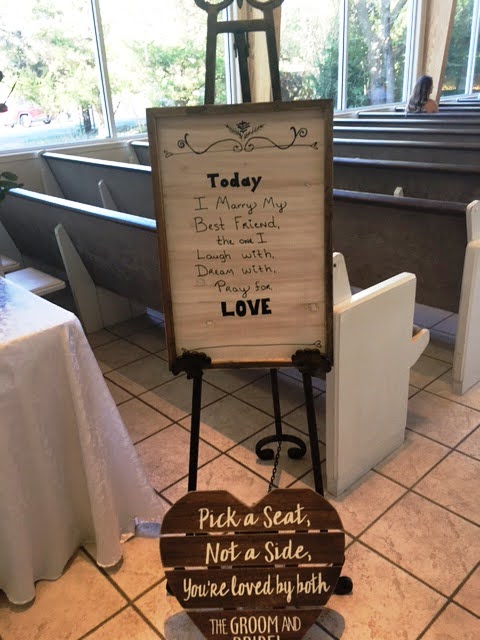 Today
I Marry My
Best Friend,
the one I
Laugh with,
Dream with,
Pray for
LOVE
Pick a Seat,
Not a Side,
You're loved by both
THE GROOM AND
BRIDE!